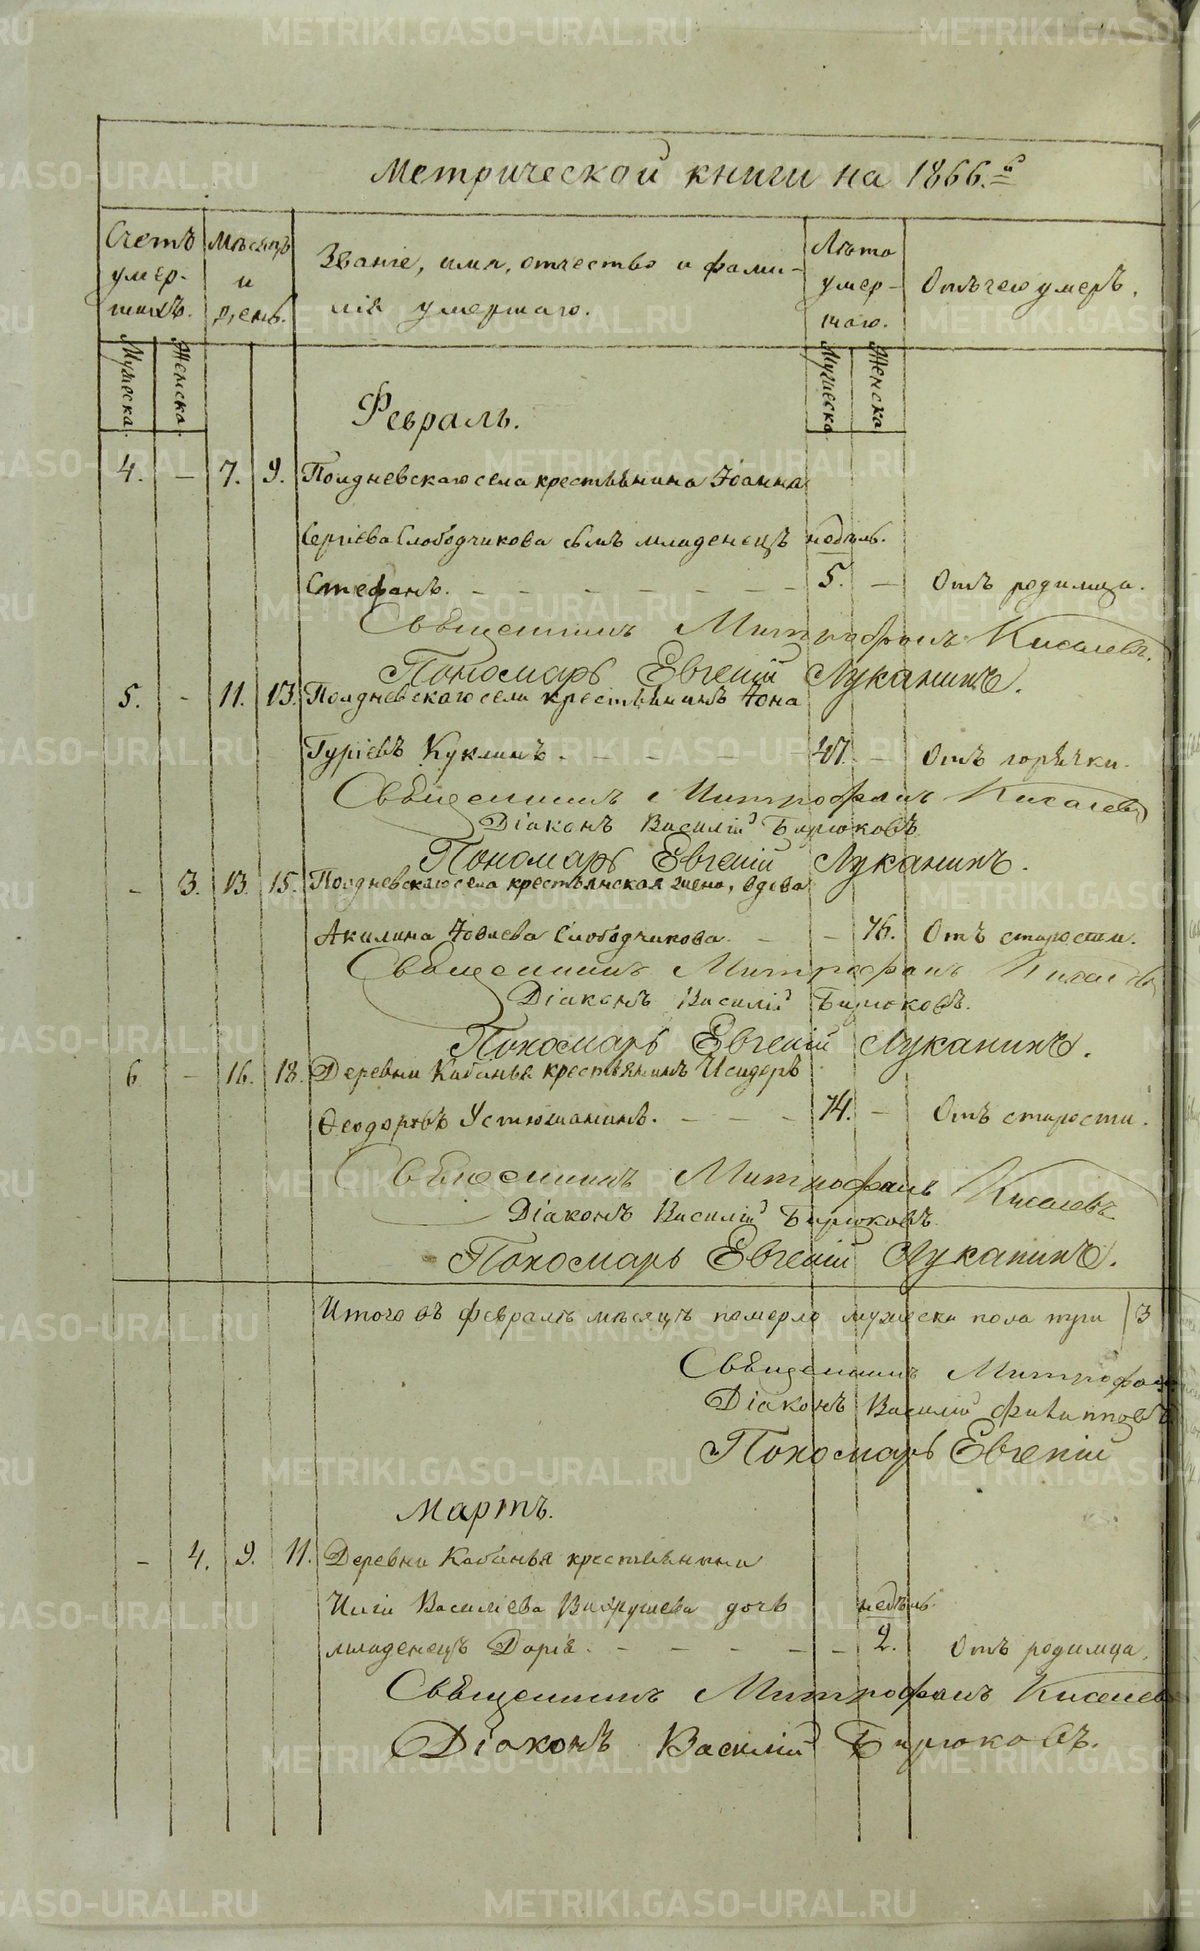 Метрической книги на 1866.й
Счетъ умер- шихъ.
Мѣсяцъ и день.
Званіе, имя, отчество и фами-
лія умершаго.
Лѣта умер- шаго.
Отъ чего умеръ.
Мужеска.
Женска.
Мужеска
Женска
Февраль.
4. — 7. 9. Полдневскаго села крестьянина Іоанна
Сергіева Слободчикова сынъ младенецъ недѣль.
Стефанъ. — — — — — — — 5. — Отъ родимца.
Священникъ Митрофанъ Киселевъ.
Пономарь Евгеній Луканинъ.
5. - 11. 13. Полдневскаго села крестьянинъ Іона
Гуріевъ Куклинъ. — — — — 47. — Отъ горячки.
Священникъ Митрофанъ Киселевъ
Діаконъ Василій Бирюковъ
Пономарь Евгеній Луканинъ.
- 3. 13. 15. Полдневскаго села крестьянская жена, вдова
Акилина Слободчикова. — — 76. Отъ старости.
Священникъ Митрофанъ Киселевъ
Діаконъ Василій Бирюковъ.
Пономарь Евгеній Луканинъ.
6 — 16. 18. Деревни Кабанья крестьянинъ Исидоръ
Ѳеодоровъ Устюжанинъ. — — — — 74. — Отъ старости.
Священникъ Митрофанъ Киселевъ
Діаконъ Василій Бирюковъ
Пономарь Евгеній Луканинъ.
Итого въ февралѣ мѣсяцѣ померло мужеска пола три 3
Священникъ Митрофанъ
Діаконъ Василій Филипповъ
Пономарь Евгеній
Мартъ.
— 4. 9. 11. Деревни Кабанья крестьянина
Василіева дочь недѣль.
младенецъ Дарія. — — — — — — 2. Отъ родимца.
Священникъ Митрофанъ Киселев
Діаконъ Василій Бирюковъ.
METRIKI.GASO-URAL.RU